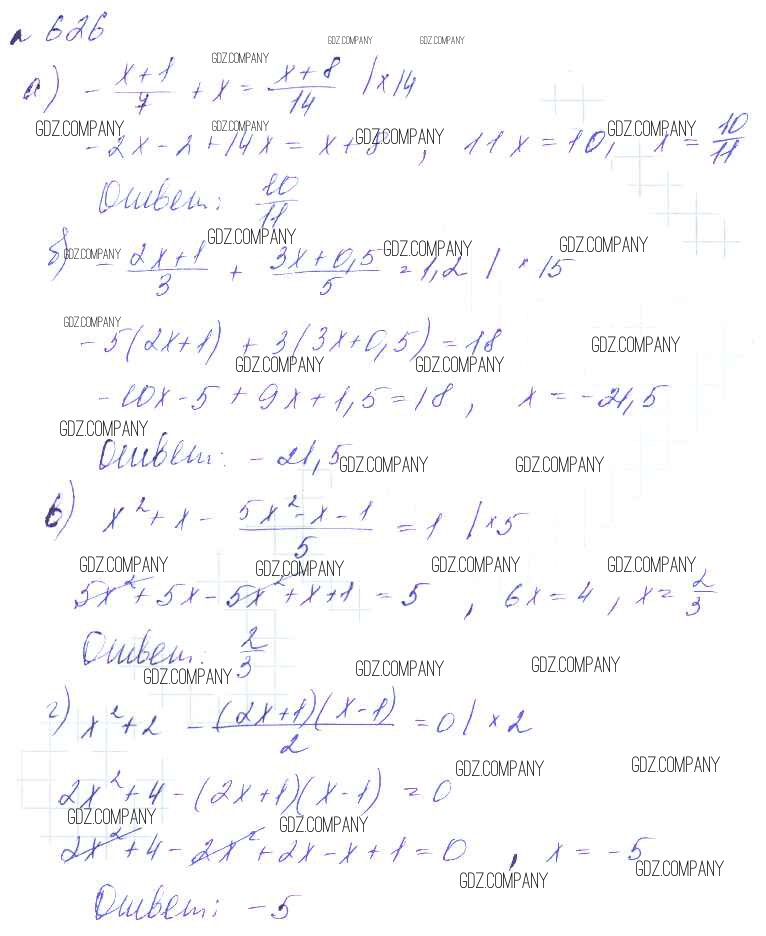 № 626
GDZ.COMPANY GDZ.COMPANY
GDZ.COMPANY
а) - (x+1)/7 + x = (x+8)/14 | x14
GDZ.COMPANY GDZ.COMPANY GDZ.COMPANY GDZ.COMPANY
-2x - 2 + 14x = x + 8 , 11x = 10, x = 10/11
Ответ: 10/11
GDZ.COMPANY GDZ.COMPANY GDZ.COMPANY GDZ.COMPANY
б) - (2x+1)/3 + (3x+0,5)/5 = 1,2 | · 15
GDZ.COMPANY
-5(2x+1) + 3(3x+0,5) = 18
GDZ.COMPANY GDZ.COMPANY GDZ.COMPANY
-10x - 5 + 9x + 1,5 = 18 , x = -21,5
GDZ.COMPANY
Ответ: -21,5
GDZ.COMPANY GDZ.COMPANY
в) x² + x - (5x² - x - 1)/5 = 1 | x5
GDZ.COMPANY GDZ.COMPANY GDZ.COMPANY GDZ.COMPANY
5x² + 5x - 5x² + x + 1 = 5 , 6x = 4 , x = 2/3
Ответ: 2/3
GDZ.COMPANY GDZ.COMPANY GDZ.COMPANY
г) x² + 2 - (2x+1)(x-1)/2 = 0 | x2
GDZ.COMPANY GDZ.COMPANY
2x² + 4 - (2x+1)(x-1) = 0
GDZ.COMPANY GDZ.COMPANY
2x² + 4 - 2x² + 2x - x + 1 = 0 , x = -5
GDZ.COMPANY GDZ.COMPANY
Ответ: -5